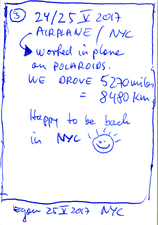 5 24/25 V 2017
AIRPLANE / NYC
worked in plane
on POLAROIDS.
WE DROVE 5270 miles
= 8480 km
Happy to be back
in NYC
25 V 2017 NYC